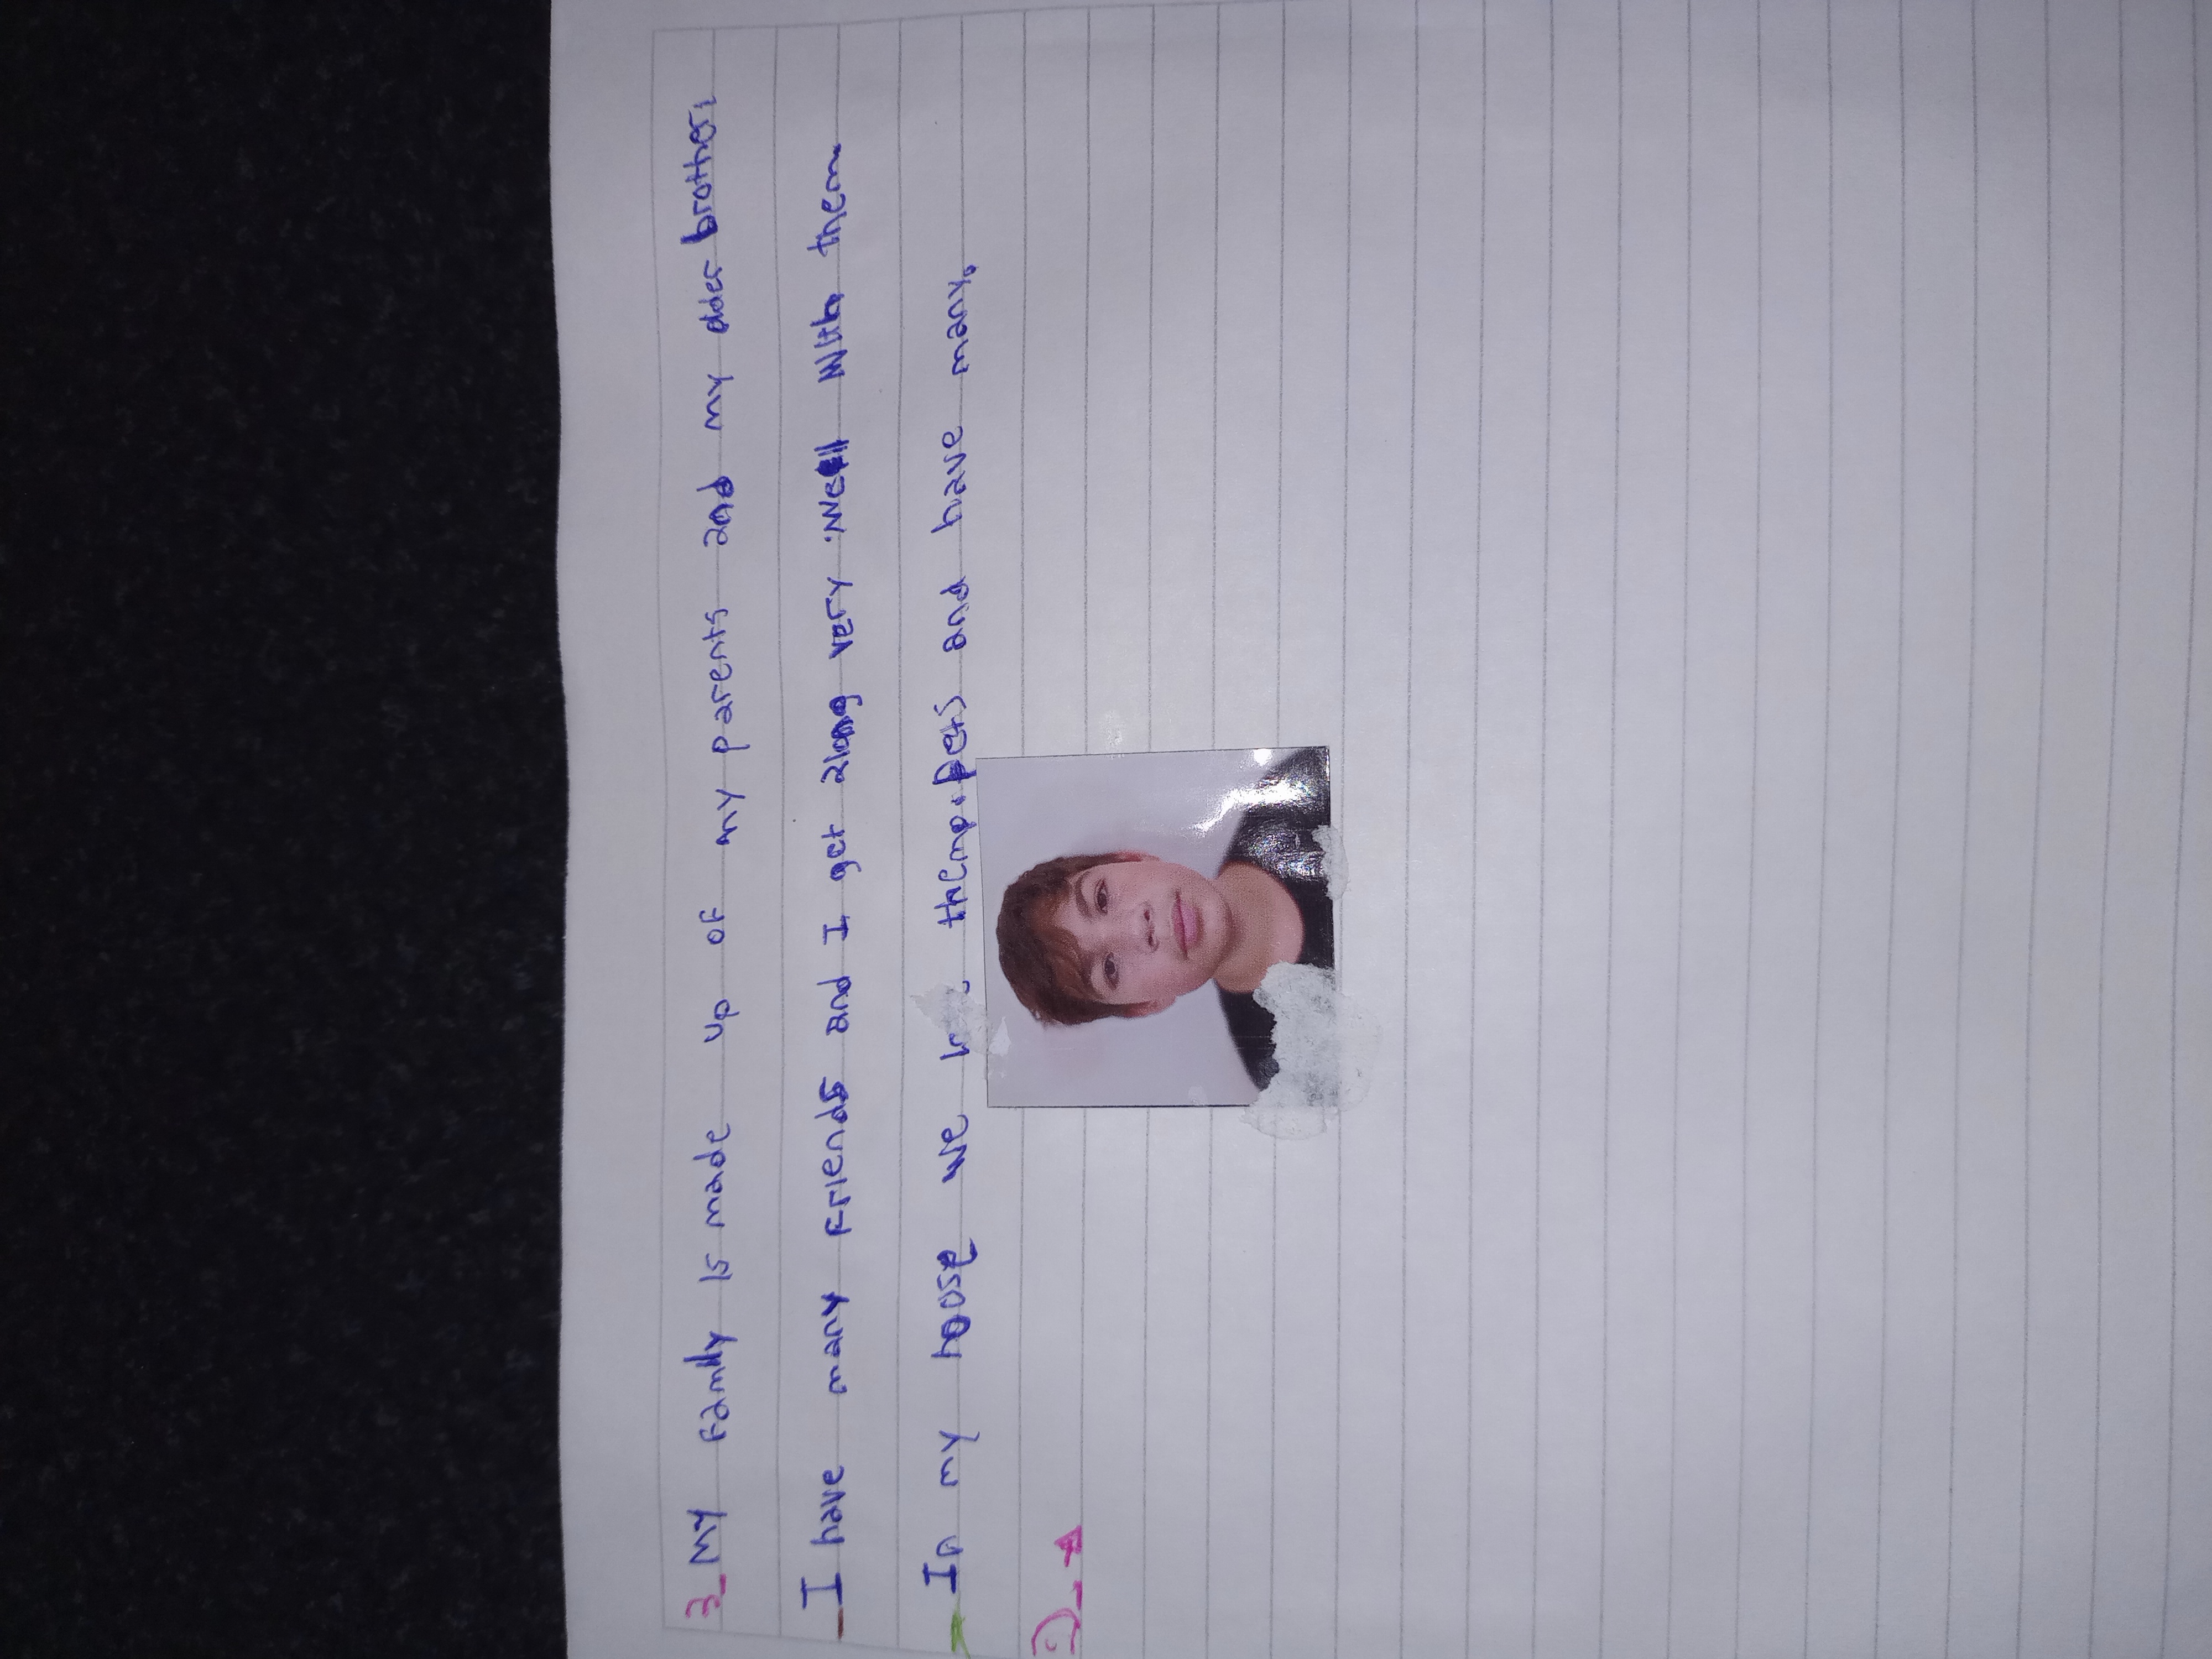 3_MY Family Is made up of my parents and my older brother.
_I have many Friends and I get along very well With them.
_In my house we the pets and have many.
2_→